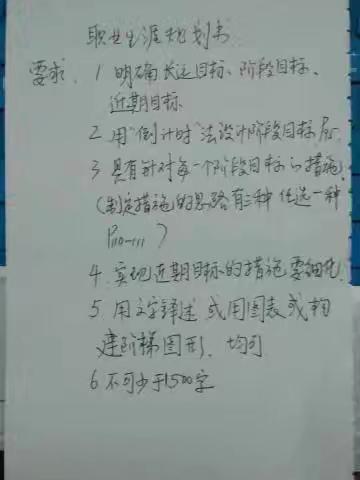 职业生涯规划书
要求. 1 明确长远目标、阶段目标、
近期目标
2 用“倒计时”法设计阶段目标
3 具有针对每一个阶段目标的措施.
(制定措施的思路有三种 任选一种
P110-111)
4. 实现近期目标的措施要细化.
5 用文字详述 或用图表或构
建阶梯图形. 均可
6 不可少于1500字